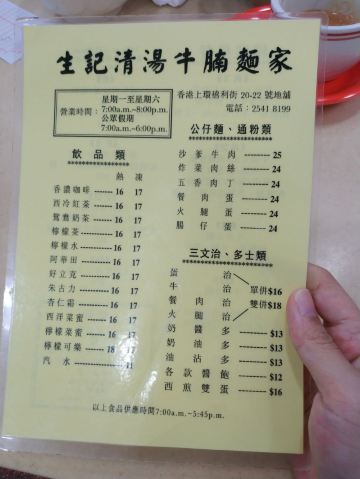 生記清湯牛腩麵家
營業時間：
星期一至星期六
7:00a.m.~8:00p.m.
公眾假期
7:00a.m.~6:00p.m.
香港上環禧利街 20-22 號地舖
電話：2541 8199
飲品類
熱 凍
香濃咖啡 16 17
西冷紅茶 16 17
鴛鴦奶茶 16 17
檸檬茶 16 17
檸檬水 16 17
阿華田 16 17
好立克 16 17
朱古力 16 17
杏仁霜 16 17
西洋菜蜜 16 17
檸檬菜蜜 16 17
檸檬可樂 18 17
汽水 11
公仔麵、通粉類
沙爹牛肉 25
炸菜肉絲 24
五香肉丁 24
餐肉蛋 24
火腿蛋 24
腸仔蛋 24
三文治、多士類
蛋治
牛治
餐肉治
火腿治
單併$16
雙併$18
奶醬多 $13
奶油多 $13
油沾多 $13
各款醬飽 $12
西煎雙蛋 $16
以上食品供應時間7:00a.m.~5:45p.m.